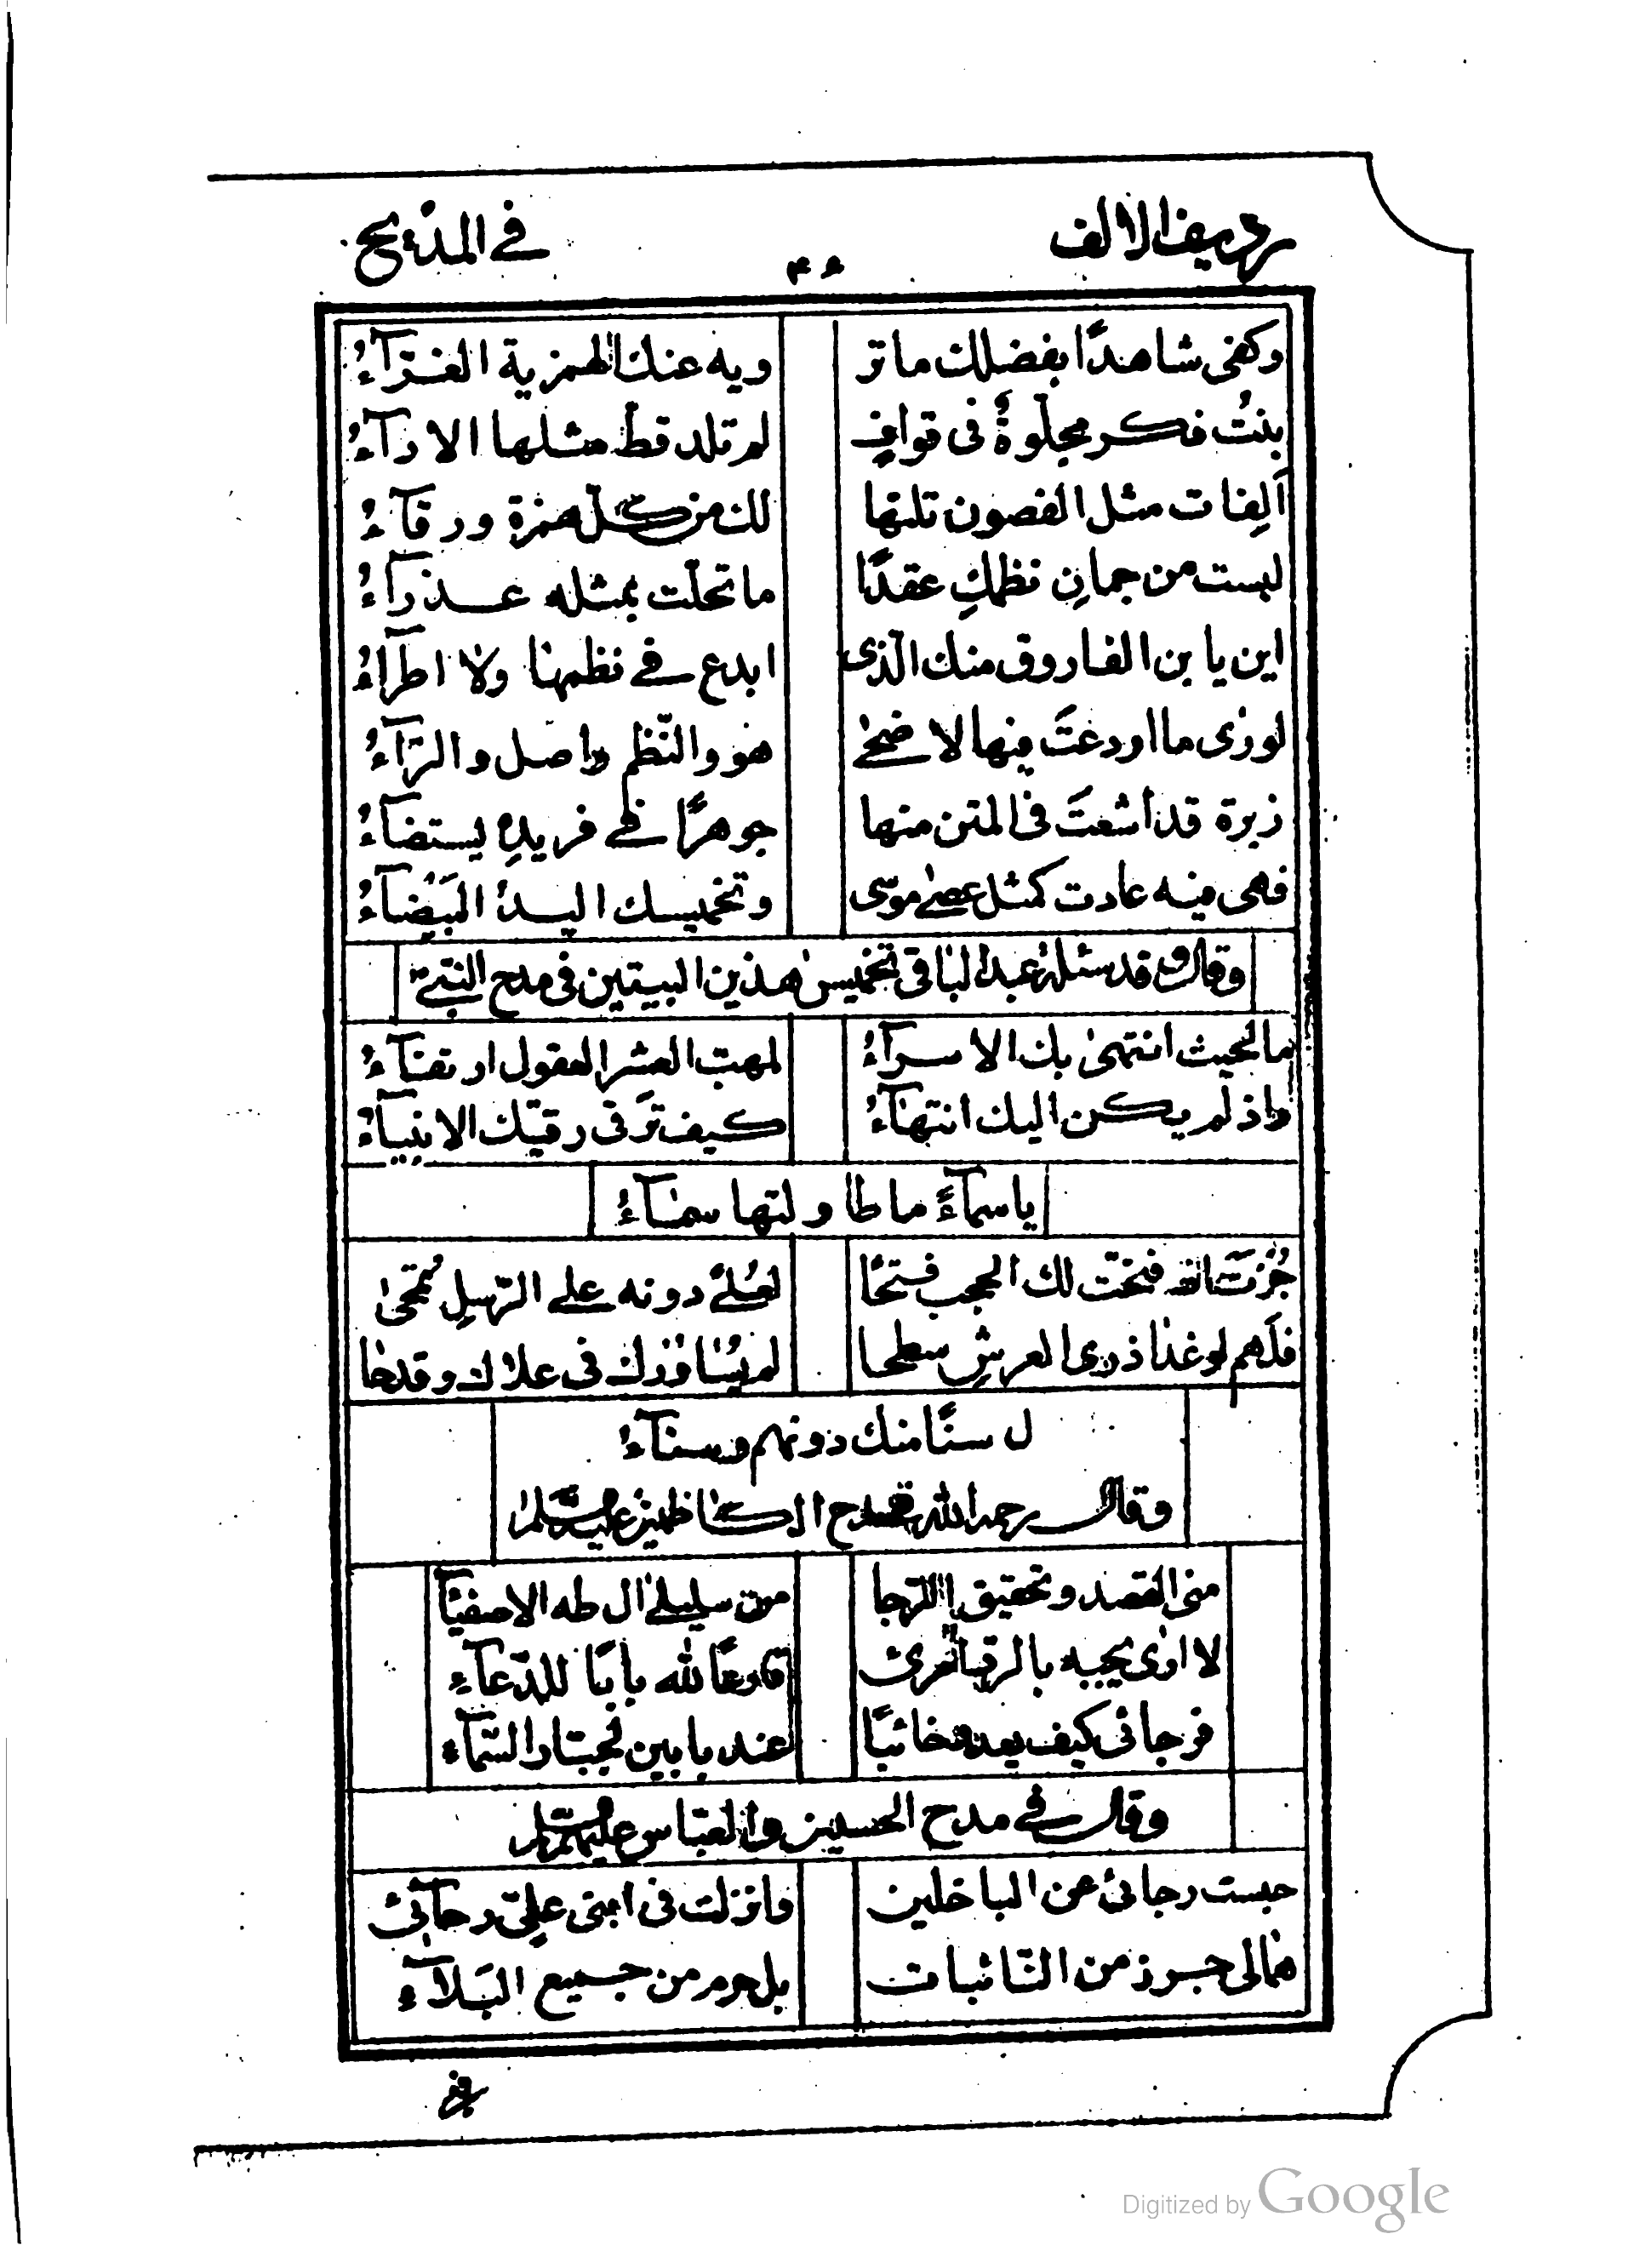 رديف الالف في المديح
٤٠
وكفى شاهدًا بفضلك ما تر ويه عنك الهمزية الغرّآءُ
بنتُ فكر مجلوةٌ في قوافٍ لم تلد قطّ مثلها الارآءُ
ألِفات مثل الغصون تلتها لك من كلّ همزة ورقآءُ
لبست من جمانِ نظمكِ عقدًا ما تحلّت بمثله عذرآءُ
اين يا بن الفاروق منك الّذى ابدع في نظمها ولا اطرآءُ
لو رٰى ما اودعتَ فيها لاضحىٰ هو والنّظم واصل والرّآءُ
زبرة قد اشعتَ فى المتن منها جوهرًا في فريدِهِ يستضآءُ
فهى فيه عادت كمثل عصىٰ موسى وتخميسك اليدُ البَيْضآءُ
وقال وقد سئله عبد الباقى تخميس هذين البيتين فى مدح النبىّ
ما لحيث انتهىٰ بك الاسرآءُ لمهبّ العشر العقول ارتقآءُ
واذ لم يكن اليك انتهآءُ كيف ترقى رقيّك الانبيآءُ
يا سمآءً ما طاولتها سمآءُ
جُزْتَ للّه فتحت لك الحجب فتحًا لعُلىً دونه على الرّسلِ تمحىٰ
فلَهم لو غدا ذرى العرشِ سطحا لم يُساوُوك فى علاك وقد حا
ل سنًا منك دونهم وسنآءُ
وقال رحمه الله فى مدح الكاظمين عليهما السّلام
منى القصد وتحقيق الرّجا من سليلى ال طه الاصفيآ
لا ارٰى يجبه بالرّد امرئ قارعًا لله بابًا للدّعآءِ
فرجائى كيف يعدو خائبًا عند بابين لجبّار السّمآء
وقال في مدح الحسين والعبّاس عليهما السّلام
حبست رجائى عن الباخلين وانزلت فى ابنى علىّ رجآئى
هما لى حرز من النّائبات بل حرم من جميع البَلآءِ